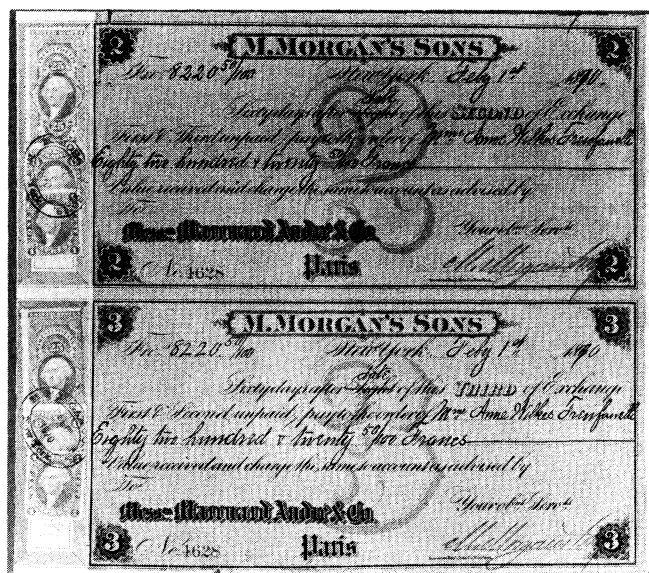 2 M. MORGAN'S SONS 2
For 8220 50/100 New York Feby 1st 1870
Sixty days after Date Sight of this SECOND of Exchange
First & Third unpaid, pay to the order of Mme Anne Wilkes
Eighty two hundred & twenty 50/100 Francs
Value received and charge the same to account as advised by
To
Messrs Marcuard André & Co. Your obt Servts
2 No 4628 Paris 2
3 M. MORGAN'S SONS 3
For 8220 50/100 New York Feby 1st 1870
Sixty days after Date Sight of this THIRD of Exchange
First & Second unpaid, pay to the order of Mme Anne Wilkes
Eighty two hundred & twenty 50/100 Francs
Value received and charge the same to account as advised by
To
Messrs Marcuard André & Co. Your obt Servts
3 No 4628 Paris 3